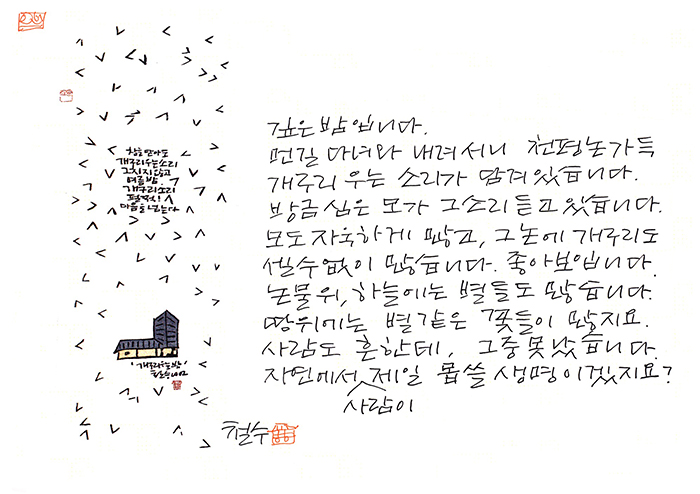 창을 닫아도
개구리 우는 소리
그치지 않고
여름 밤.
개구리 소리
마음을
'개구리 우는 밤'
깊은 밤입니다.
먼길 다녀와 내려서니 천평논 가득
개구리 우는 소리가 담겨있습니다.
방금 심은 모가 그소리 듣고 있습니다.
모도 자욱하게 많고, 그 논에 개구리도
셀수 없이 많습니다. 좋아보입니다.
논물 위, 하늘에는 별들도 많습니다.
땅위에는 별같은 꽃들이 많지요.
사람도 흔한데, 그중 못났습니다.
자연에서 제일 몹쓸 생명이겠지요?
사람이
철수